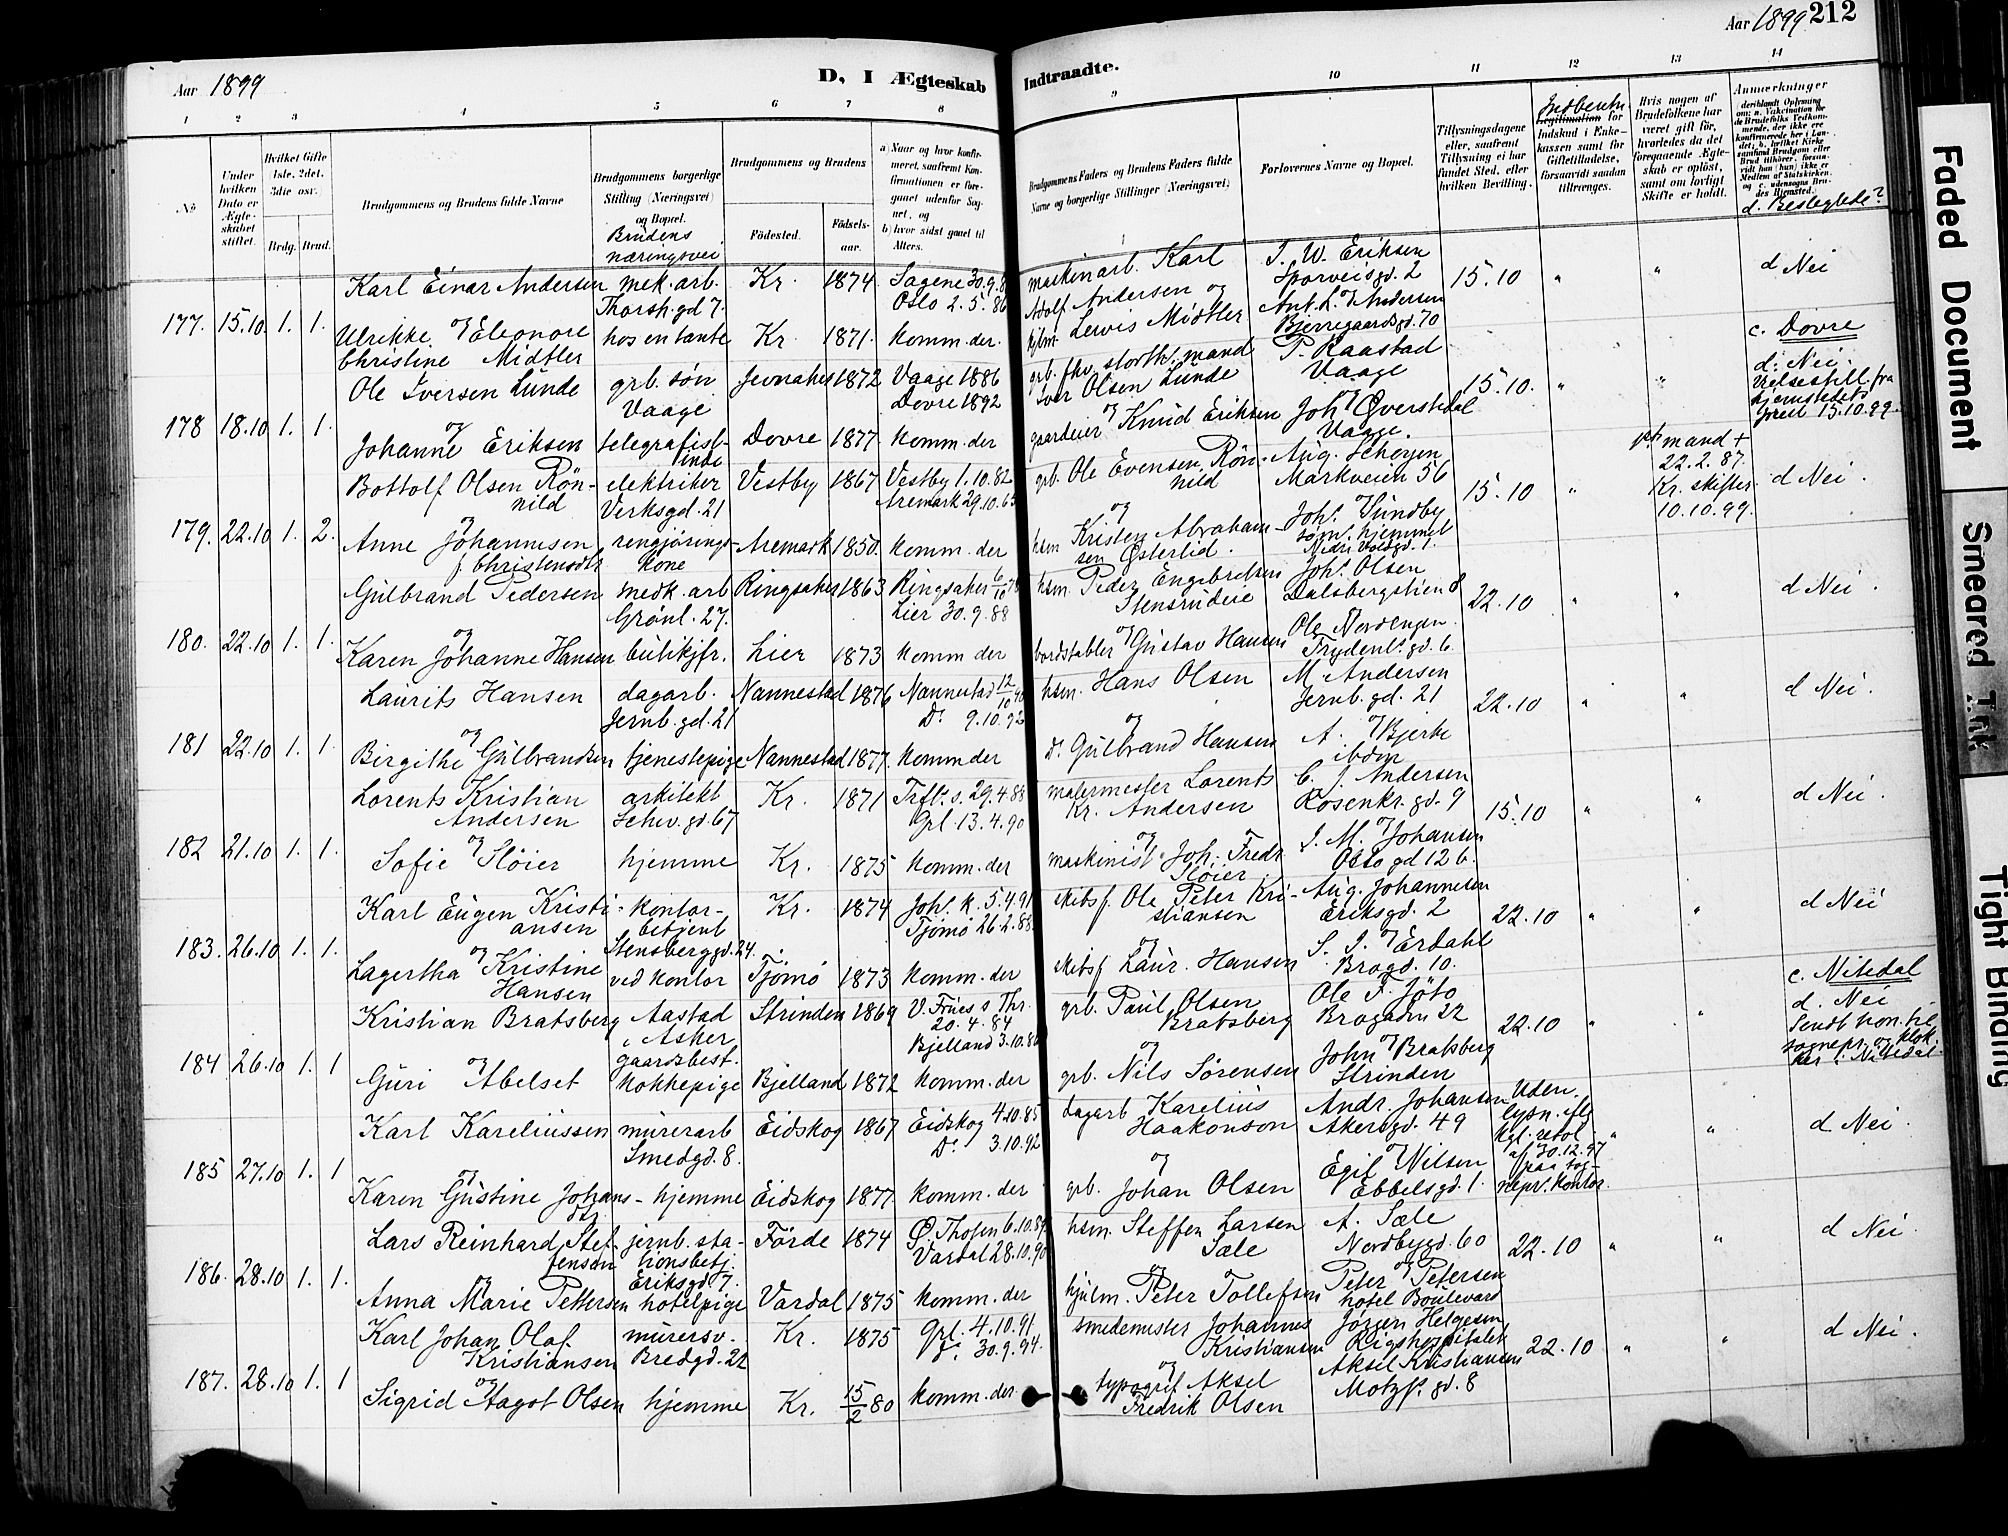 Aar 1899
D, I Ægteskab
Indtraadte.
Aar 1899 212
1 2 3 4 5 6 7 8 9 10 11 12 13 14
No
Under hvilken Dato er Ægteskabet stiftet.
Hvilket Gifte (1ste, 2det, 3die osv.
Brdg. Brud.
Brudgommens og Brudens fulde Navne
Brudgommens borgerlige Stilling (Næringsvei) og Bopæl.
Brudens næringsvei
Brudgommens og Brudens
Födested. Födselsaar.
a) Naar og hvor konfirmeret, saafremt Konfirmationen er foregaaet udenfor Sognet, og
b) hvor sidst gaaet til Alters.
Brudgommens Faders og Brudens Faders fulde Navne og borgerlige Stillinger (Næringsvei)
Forlovernes Navne og Bopæl.
Tillysningsdagene eller, saafremt Tillysning ei har fundet Sted, efter hvilken Bevilling.
Legitimation for Indskud i Enkekassen samt for Giftetilladelse, forsaavidt saadan tiltrenges.
Hvis nogen af Brudefolkene har været gift för, hvorledes da det foregaaende Ægteskab er oplöst, samt om lovligt Skifte er holdt.
Anmærkninger
d. Beslegtede?
177. 15.10 1. 1.
Karl Einar Andersen mek. arb. Kr. 1874 Sagene 30.9.
Thorsh.gd 7. Oslo 2.5.86
og
Ulrikke Eleonore hos en tante Kr. 1871. komm. der.
Christine Midtler
maskinarb. Karl J. W. Eriksen 15.10 " " d Nei
Adolf Andersen og Sporveisgd. 2
Lewis Midtler Ant. L. Andersen
Bjerregaardsgd. 70
178 18.10 1. 1.
Ole Iversen Lunde grb. søn Jevnaker 1872 Vaage 1886
Vaage Dovre 1892
og
Johanne Eriksen telegrafistinde Dovre 1877 komm. der
grb. fhv. storth. mand P. Raastad 15.10. " " c. Dovre
Iver Olsen Lunde Vaage d: Nei.
og
gaardeier Knud Eriksen Joh. Øverstedal
Vaage.
hjemstedets
15.10.99.
179. 22.10 1. 2.
Bottolf Olsen Rönnild elektriker Vestby 1867 Vestby 1.10.82
Verksgd. 21 Aremark 29.10.65
og
Anne Johannesen rengjøringskone Aremark 1850. komm. der
f. Christensdtr
grb. Ole Evensen Rönnild Aug. Schorgen 15.10 " mand + d Nei.
Markveien 56 22.2.87.
og Joh. Sundby Kr. skifter.
hsm Kristen Abrahamsen Østerlid. søml. hjemmet 10.10.99.
Nedri Voldgd. 1.
180. 22.10 1. 1.
Gulbrand Pedersen medk. arb Ringsaker 1863 Ringsaker 6/10 78
Grønl. 27. Lier 30.9.88
og
Karen Johanne Hansen butikjfr. Lier 1873 komm der
hsm. Peder Engebretsen Joh. Olsen 22.10 " " d Nei.
Stensrudeie Dalsbergstien 8
og Ole Nordengen
bordstabler Gustav Hansen Frydenl. gd. 6.
181 22.10 1. 1.
Laurits Hansen dagarb. Nannestad 1876 Nannestad 12/10 90
Jernb. gd. 21 Do 9.10.92
og
Birgithe Gulbrandsen tjenestepige Nannestad 1877. komm der
hsm. Hans Olsen M. Andersen 22.10 " " d Nei.
Jernb. gd. 21
og
Do Gulbrand Hansen A. Bjerke
ibdm
182 21.10 1. 1.
Lorents Kristian arkitekt Kr. 1871 Trft. s. 29.4.88
Andersen Schw. gd. 67 Grl. 13.4.90
og
Sofie Sløier hjemme Kr. 1875 komm. der
malermester Lorents C. J. Andersen 15.10 " " d Nei.
Kr. Andersen Rosenkr. gd. 9
og J. M. Johansen
maskinist Joh. Fredr Sløier Oslo gd 12 b.
183. 26.10 1. 1.
Karl Eugen Kristiansen kontorbetjent Kr. 1874 Joh. k. 5.4.91
Stensberggd. 24. Tjømø 26.2.88
og
Lagertha Kristine ved kontor Tjømø 1873 komm. der
Hansen
skibsf. Ole Peter Kristiansen Aug. Johannesen 22.10 " " d Nei
Eriksgd. 2
og S. J. Erdahl
skibsf Laur. Hansen Brogd. 10.
184 26.10 1. 1
Kristian Bratsberg Aastad Strinden 1869 V. Frues s Thr.
i Asker 20.4.84
gaardsbest. Bjelland 3.10.86
og
Guri Abelset kokkepige Bjelland 1872 komm. der
grb. Paul Olsen Ole F. Jöto 22.10 " " c. Nitedal
Bratsberg Brogaden 22 d. Nei
og John Bratsberg Sendt kon. til
grb. Nils Sörensen Strinden sognepr. og klokker i Nitedal.
185 27.10 1. 1
Karl Kareliussen murerarb Eidskog 1867 Eidskog 4.10.85
Smedgd. 8. Do 3.10.92
og
Karen Gustine Johansdtr hjemme Eidskog 1877. komm. der
dagarb Karelius Andr. Johansen Uden " " d Nei.
Haakonson Akersgd. 49 lysn. efter kgl. resol.
og Egil Nilsen af 30.12.97
grb. Johan Olsen Ebbelsgd. 1. paa sognepr. kontor.
186. 28.10 1. 1.
Lars Reinhard Steffensen jernb. stationsbetj. Förde 1874 Ø. Thoten 6.10.89
Eriksgd 7. Vardal 28.10.90
og
Anna Marie Pettersen hotelpige Vardal 1875 komm. der
hsm. Steffen Larsen A. Sæle 22.10 " " d Nei.
Sæle Nordbygd. 60
og Peter Petersen
hjulm. Peter Tollefsen hotel Boulevard
187. 28.10 1. 1
Karl Johan Olaf mürersv. Kr. 1875 Grl. 4.10.91
Kristiansen Bredgd. 22 J. 30.9.94.
og
Sigrid Aagot Olsen hjemme Kr. 15/2 80 komm. der
smedemester Johannes Jörgen Helgesen 22.10 " " d Nei.
Kristiansen Rigshospitalet
og Aksel Kristiansen
typogrf Aksel Motzf. gd. 8
Fredrik Olsen
Faded Document
Smeared Ink
Tight Binding